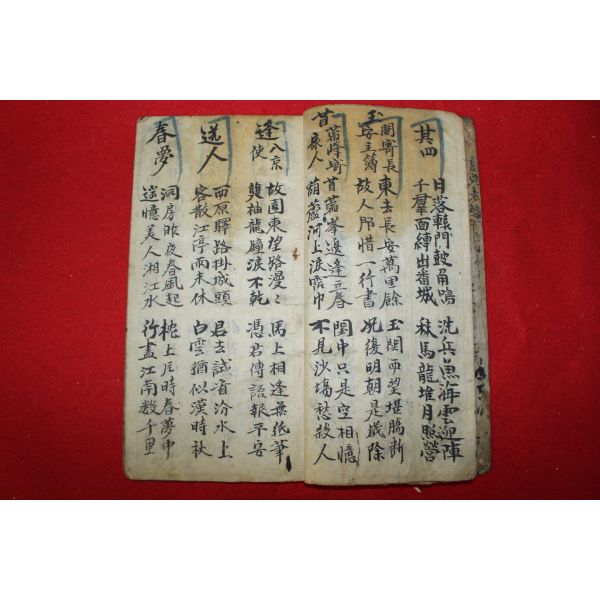 其四
日落轅門鼓角鳴
千羣面縛出番城
洗兵魚海雲迎陣
秣馬龍堆月照營
玉關寄長安主簿
東去長安萬里餘
故人那惜一行書
玉関西望堪腸断
况復明朝是歲除
苜蓿峰寄家人
苜蓿峯邊逢立春
葫蘆河上淚霑巾
閨中只是空相憶
不見沙場愁殺人
逢入京使
故園東望路漫〻
雙袖龍鍾淚不乾
馬上相逢無紙筆
憑君傳語報平安
送人
西原驛路掛城頭
客散江亭雨未休
君去試省汾水上
白雲猶似漢時秋
春夢
洞房昨夜春風起
遥憶美人湘江水
枕上片時春夢中
行盡江南數千里